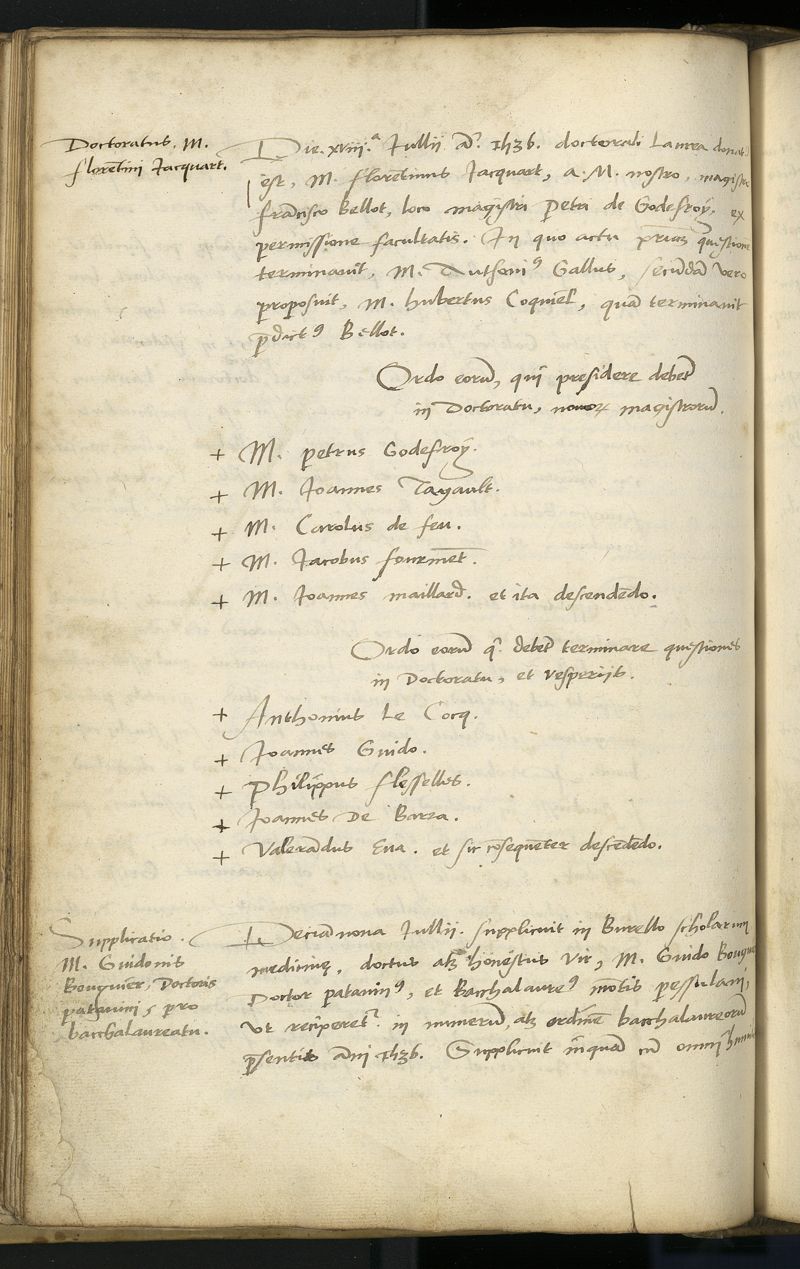 Doctoratus. M.
florētini Jacquart.
Die. xviii.ᵃ Jullii añ. 1536. doctorali Laurea donat9
est, M. florētinus Jacquart, a. M. nostro, magistro
frācisco Bellot, loco magistri Petri de Godefroÿ. ex
permissione facultatis. In quo actu questionē
terminavit, M. Anthoni9 Gallus, secūdā vero
proposuit, M. hubertus, quā terminavit
p̄dict9 Bellot.
Ordo eorū, qui presidere debēt
in Doctoratu, novoꝝ magistrorū.
+ M. petrus Godefroÿ.
+ M. Joannes Tagault.
+ M. Carolus de feu.
+ M. Jacobus fourmēt.
+ M. Joannes maillard. et ita descendēdo.
Ordo eorū q̄ debēt terminare questiones
in Doctoratu, et vesperijs.
+ Anthonius Le Cocq.
+ Joannes Guido.
+ Philippus flesselles.
+ Joannes De Barra.
+ Valerādus Eva. et sic cōsequēter descēdēdo.
Supplicatio.
M. Guidonis
Bouguier, Doctoris
patavini, pro
bacchalaureatu.
Decianona Jullii. supplicuit in Burello scholarum
medicinę, doctus atꝗ honestus vir, M. Guido
Doctor patavin9, et Bacchalaure9 mōtis pessulani,
Ut reciperet᷑ in numerū, atꝗ ordinē bacchalaureorū
p̄sentis añi 1536. Supplicuit inquā cū omni